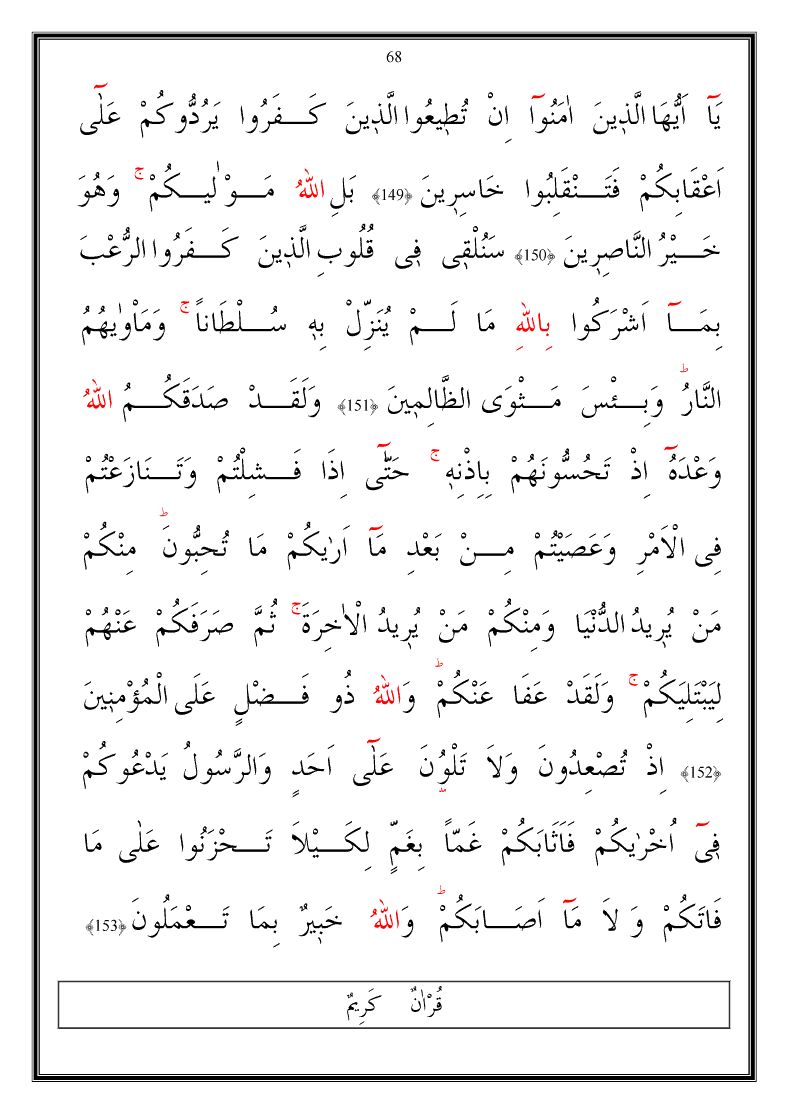 68
يَٓا اَيُّهَا الَّذ۪ينَ اٰمَنُٓوا اِنْ تُط۪يعُوا الَّذ۪ينَ كَـــفَرُوا يَرُدُّوكُمْ عَلٰٓى
اَعْقَابِكُمْ فَتَـــنْقَلِبُوا خَاسِر۪ينَ ﴿149﴾ بَلِ اللّٰهُ مَـــوْلٰيـــكُمْۚ وَهُوَ
خَـــيْرُ النَّاصِر۪ينَ ﴿150﴾ سَنُلْق۪ى ف۪ى قُلُوبِ الَّذ۪ينَ كَـــفَرُوا الرُّعْبَ
بِمَـــٓا اَشْرَكُوا بِاللّٰهِ مَا لَـــمْ يُنَزِّلْ بِه۪ سُـــلْطَاناًۚ وَمَاْوٰيهُمُ
النَّارُۜ وَبِـــئْسَ مَـــثْوَى الظَّالِم۪ينَ ﴿151﴾ وَلَقَـــدْ صَدَقَكُـــمُ اللّٰهُ
وَعْدَهُٓ اِذْ تَحُسُّونَهُمْ بِاِذْنِه۪ۚ حَتّٰٓى اِذَا فَـــشِلْتُمْ وَتَـــنَازَعْتُمْ
فِى الْاَمْرِ وَعَصَيْتُمْ مِـــنْ بَعْدِ مَٓا اَرٰيكُمْ مَا تُحِبُّونَۜ مِنْكُمْ
مَنْ يُر۪يدُ الدُّنْيَا وَمِنْكُمْ مَنْ يُر۪يدُ الْاٰخِرَةَۚ ثُمَّ صَرَفَكُمْ عَنْهُمْ
لِيَبْتَلِيَكُمْۚ وَلَقَدْ عَفَا عَنْكُمْۜ وَاللّٰهُ ذُو فَـــضْلٍ عَلَى الْمُؤْمِن۪ينَ
﴿152﴾ اِذْ تُصْعِدُونَ وَلاَ تَلْوُ۫نَ عَلٰٓى اَحَدٍ وَالرَّسُولُ يَدْعُوكُمْ
ف۪ٓى اُخْرٰيكُمْ فَاَثَابَكُمْ غَمّاً بِغَمٍّ لِكَـــيْلاَ تَـــحْزَنُوا عَلٰى مَا
فَاتَكُمْ وَ لاَ مَٓا اَصَـــابَكُمْۜ وَاللّٰهُ خَب۪يرٌ بِمَا تَـــعْمَلُونَ ﴿153﴾
قُرْاٰنٌ كَرِيمٌ